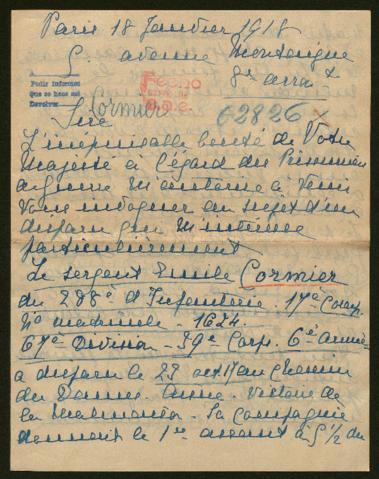 Paris 18 Janvier 1918
5. avenue Montaigne
8e arrdt
Pedir informes
Que se haga así
Devolver
Fecho
Cormier
62826 x
Sire
L'inépuisable bonté de Votre
Majesté à l'égard des Prisonniers
de guerre m'autorise à venir
vous invoquer au sujet d'un
disparu qui m'intéresse
particulièrement
Le sergent Emile Cormier
du 288e d'Infanterie. 17e Comp.
No matricule. 1624.
67e Division - 39e Corps. 6e Armée
a disparu le 23 oct. 17 au Chemin
des Dames. Aisne. Victoire de
la Malmaison. Sa Compagnie
donnait le 1er assaut à 5 1/2 du